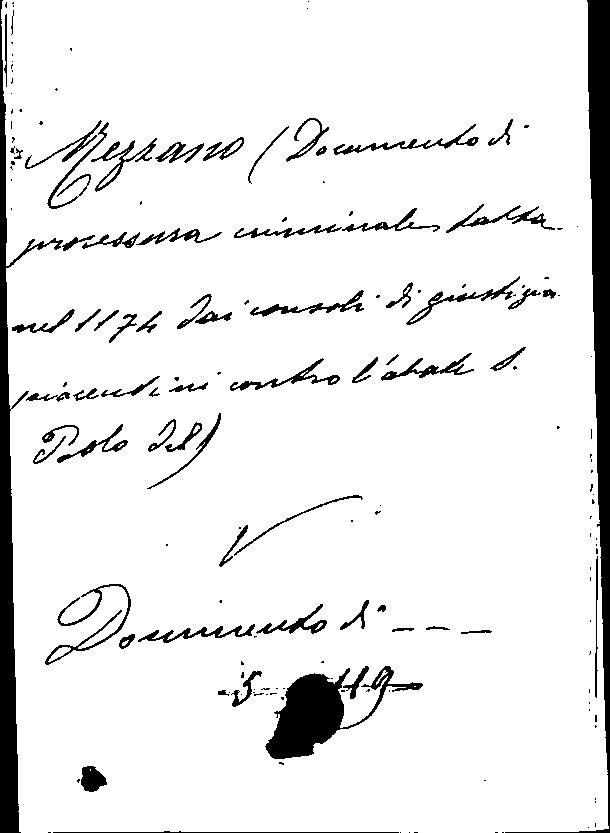 Mezzano (Documento di
processura criminale fatta
nel 1174 dai consoli di giustizia
piacentini contro l'abate S.
Paolo del)
V
Documento di" _ _ _
5 119